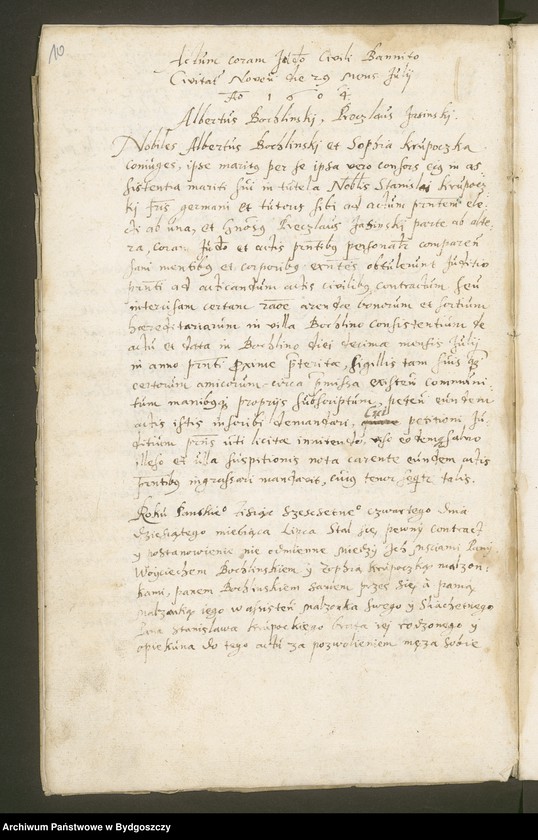 10
Actum coram Judo Civili Bannito
Civitat Noven die 29 Mens Julij
Ao 1604
Albertus Bochlinskj, Preczlaus Jasinskj.
Nobiles Albertus Bochlinskj et Sophia Krupoczka
coniuges, ipse maritus per se ipsa vero consors eius in as-
sistentia mariti sui in tutela Nobilis Stanislai Krupocz
kj fris germani et tutoris sibi ad actum prntem ele
cti ab una, et Gnosus Preczlaus Jasinskj parte ab alte
ra, coram Judo et actis prntibus personalr comparen
sani mentibus et corporibus exntes obtulerunt Judicio
prnti ad acticandum actis civilibus contractum seu
intercisam certam raoe arendae bonorum et sortium
haereditariarum in villa Bochlino consistentium de
actu et data in Bochlino diei decimae mensis Julij
in anno prnti proxime praeterita, sigillis tam suis
certorum amicorum circa praemissa existen communi-
tum manibusque proprijs subscriptum, peten eundem
actis istis inscribi demandari, petitioni Ju
dicium prns uti licitae innitendo, viso eo tempsamo
illeso et ulla suspitionis nota carente eundem actis
prntibus ingrossari mandavit, cuius tenor seqtr talis.
Roku Panskie tisiąc szescsetne czwartego dnia
dziesiątego miesiąca Lipca Stal się pewny contract
y postanowienie nie odmienne miedzy Ich Msciami Pany
Woyciechem Bochlinskiem y Zophią Krupoczką małzon-
kami, panem Bochlinskiem samem przes się, a panią
małzonką iego w asisten małzonka swego y Slachetnego
Pana Stanislawa Krupockiego brata iey rodzonego y
opiekuna do tego acti za pozwolieniem męza sobie
Archiwum Państwowe w Bydgoszczy